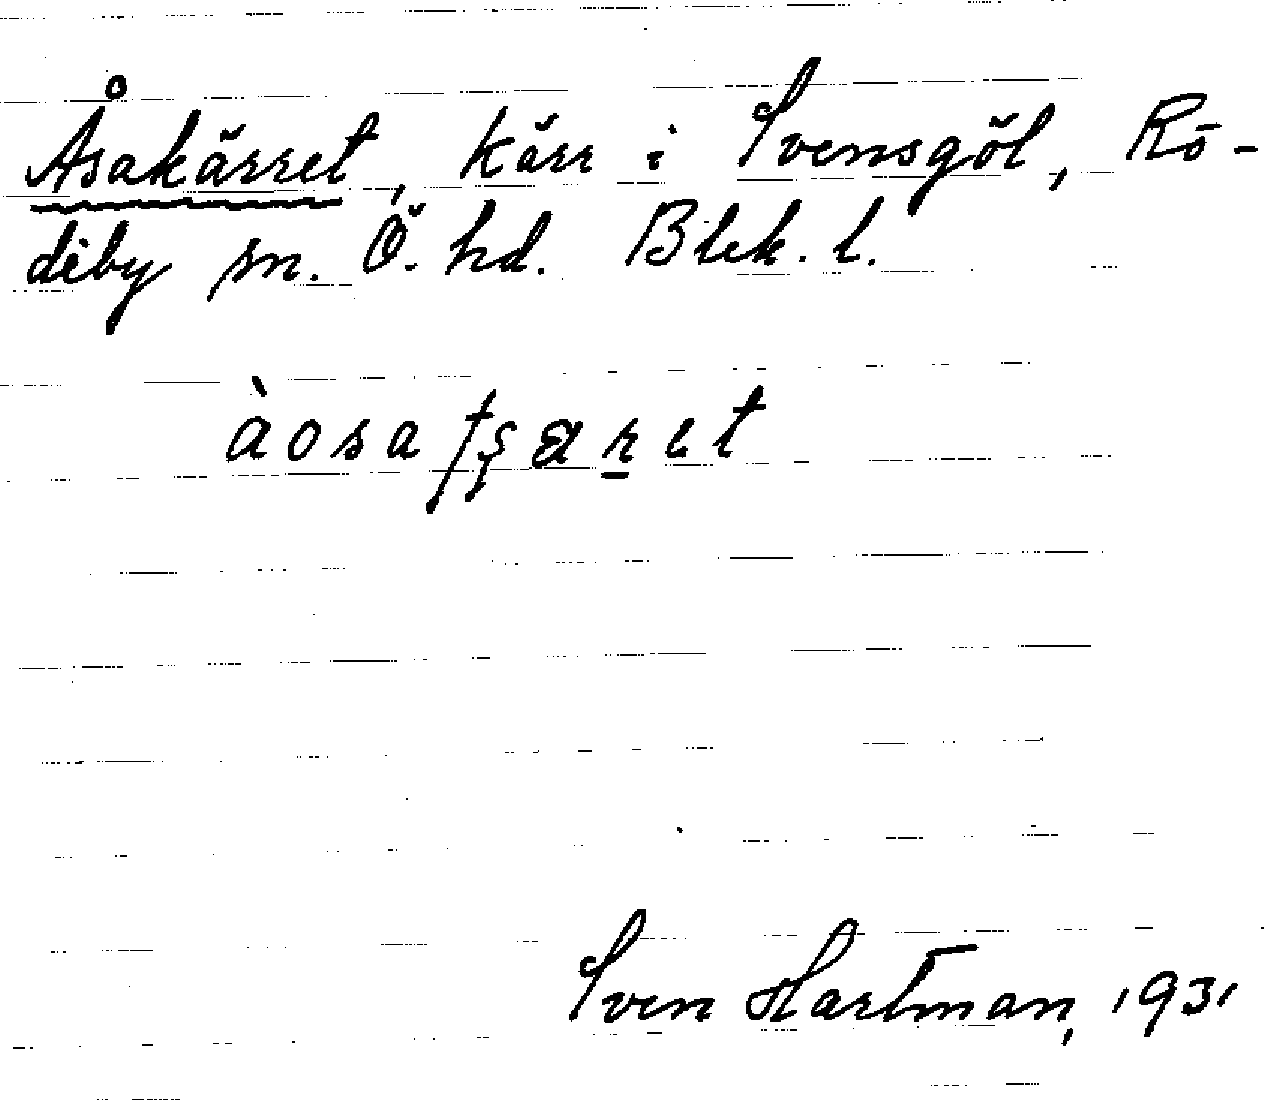 Åsakärret, kärr i Svensgöl, Rö-
diby sn. Ö. hd. Blek. l.
àosa ʈʂaret
Sven Hartman, 1931